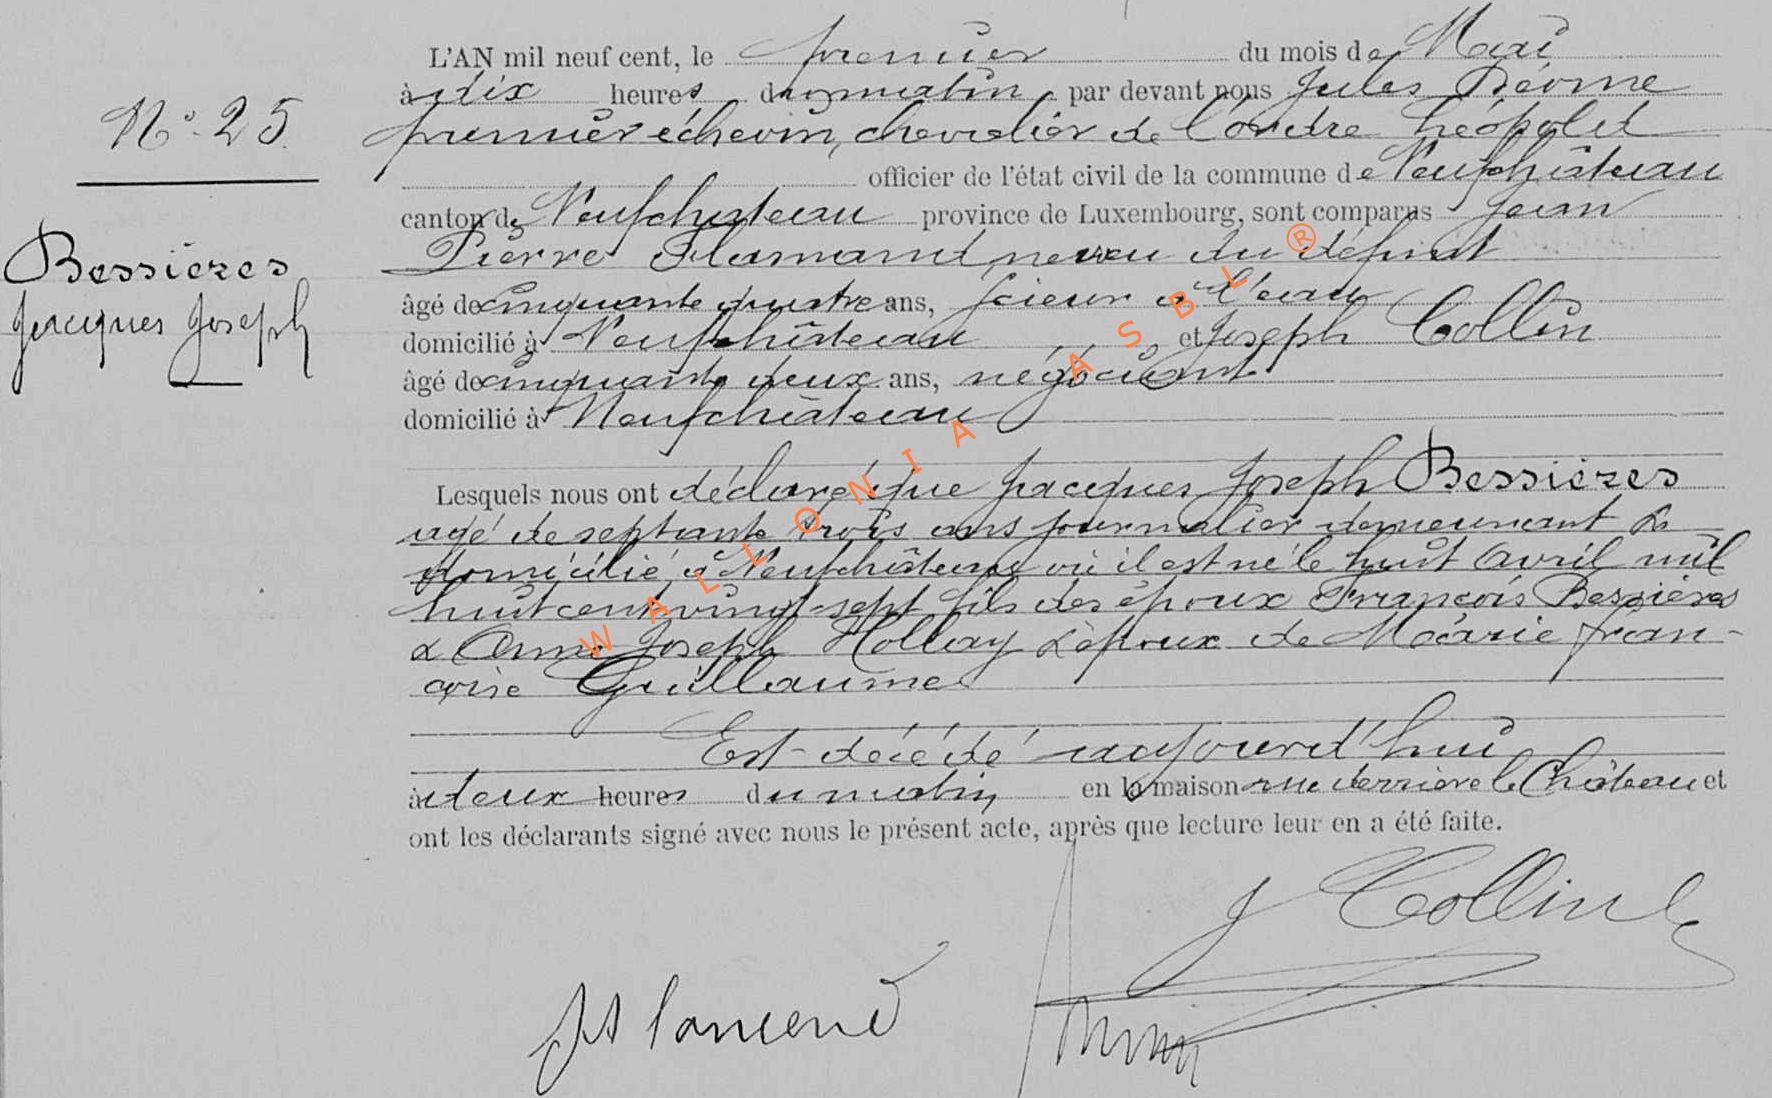 N° 25.
Bessières
Jacques Joseph
L'AN mil neuf cent, le premier du mois de Mai
à dix heures du matin par devant nous Jules
premier échevin, chevalier de l'ordre Léopold
officier de l'état civil de la commune de Neufchâteau
canton de Neufchateau province de Luxembourg, sont comparus Jean
Pierre Flamand neveu du défunt
âgé de cinquante quatre ans, scieur à l'eau
domicilié à Neufchâteau et Joseph Collin
âgé de cinquante deux ans, négociant
domicilié à Neufchâteau
Lesquels nous ont déclaré que Jacques Joseph Bessières
agé de septante trois ans journalier demeurant &
domicilié à Neufchâteau où il est né le huit Avril mil
huit cent vingt-sept fils des époux François Bessières
& Anne Joseph Hollay & époux de Marie Fran-
çoise Guillaume
Est décédé aujourd'hui
à deux heures du matin en la maison rue derrière le Château et
ont les déclarants signé avec nous le présent acte, après que lecture leur en a été faite.
J Collin
JP Flamend
WALLONIA ASBL ®